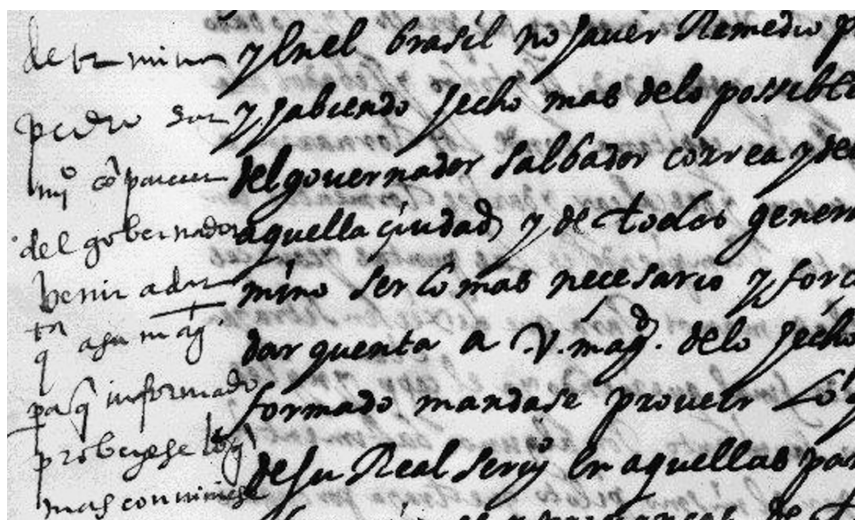 determina
pedro sar
mi.º cō parecer
del gobernador
benir a dar
q.ta a su mag.d
para q informado
probeyese lo q
mas conviniese
y En el brasil no javer Remedio p
y jabiendo jecho mas delo possible
del governador salbador correa y de
aquella ciudad y de todos gener
mino ser lo mas necesario y forc
dar quenta a V. mag.d delo jecho
formado mandase proveer Lo q
de su Real servi.o En aquellas par